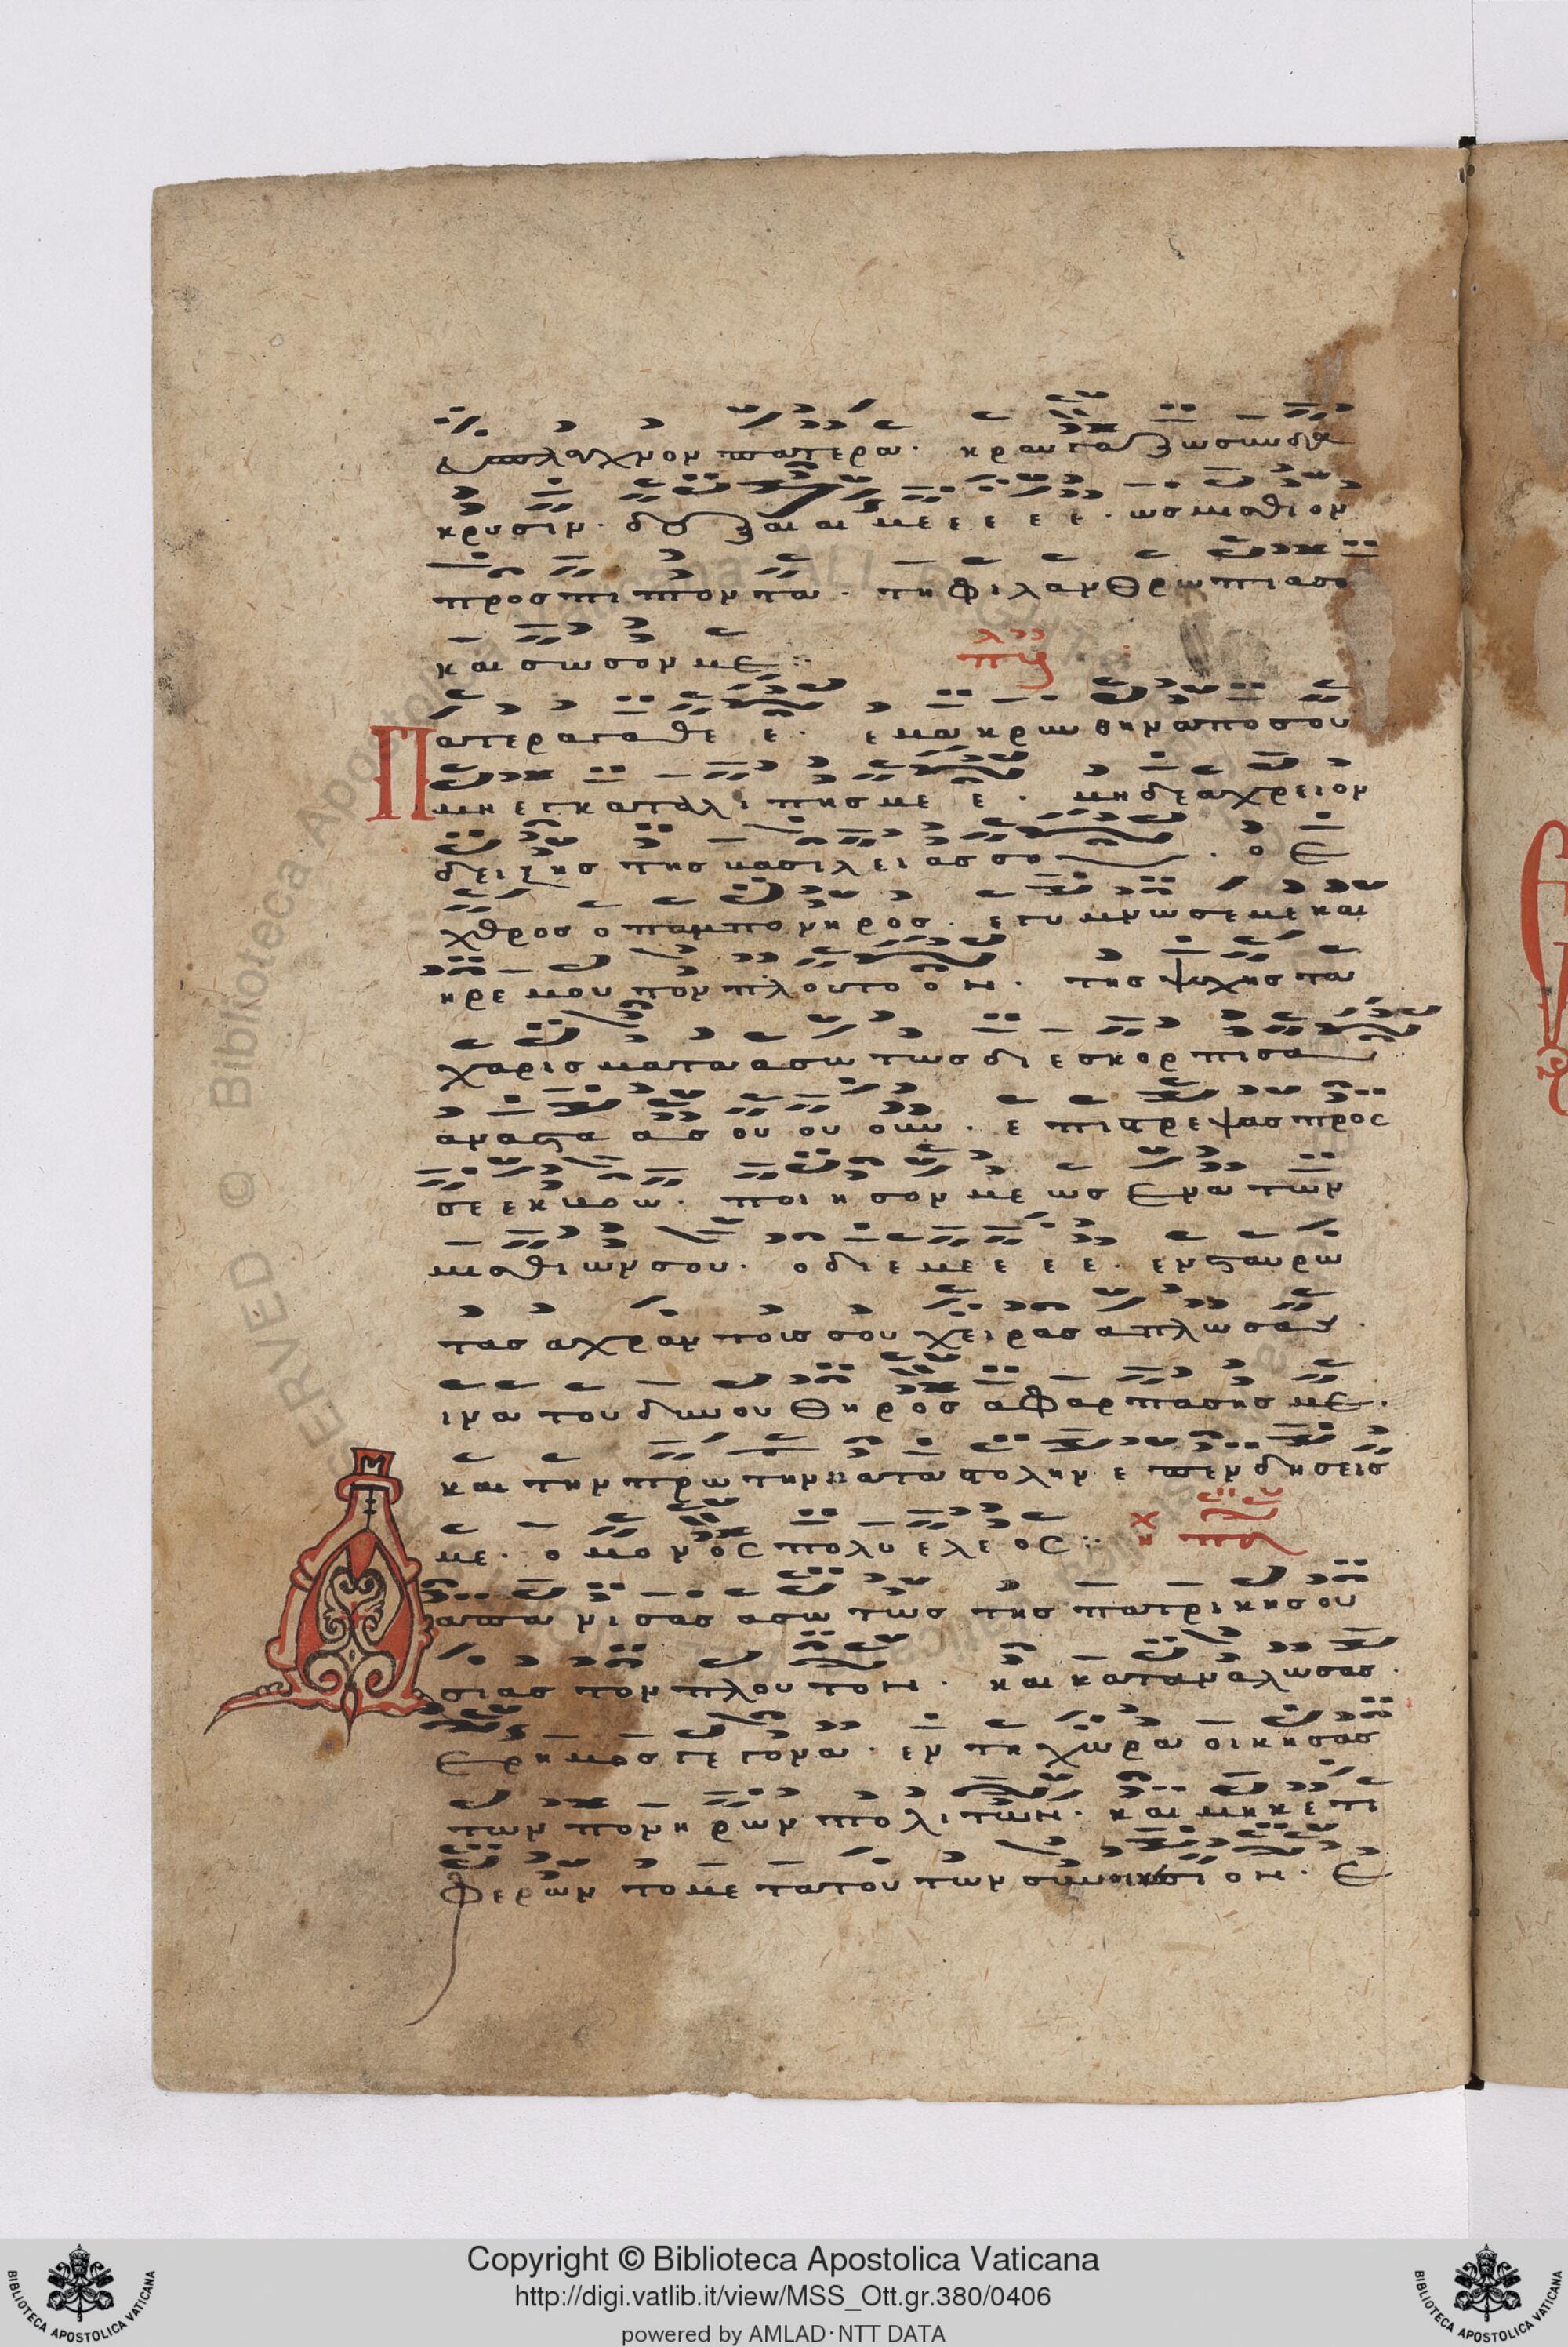 σπλαγχνον πατερα. κραυγαζω συν δα
κρυσιν. δεξαι αι με ε ε ε ε. ως μαθιον
προσπιπτοντα. τη φιλανθρωπια σου
και σωσον με:
Πατερ αγαθε ε. εμακρυνθην απο σου
μη εγκαταλιπης με ε. μηδε αχρειον
δειξης της βασιλειας σου. ο ε
χθρος ο παμπονηρος. εγυμνωσε με και
ηρε μου τον πλουτο ον. της ψυχης τα
χαρισματα ασωτως διεσκορπισα
αναστα ας ου ου ουν. επιστρεψας προς
σε εκβοω. ποιησον με ως ενα των
μισθιων σου. ο δι εμε ε ε ε. εν σταυρω
τας αχραντους σου χειρας απλωσας.
ινα του δεινου θηρος αφαρπασης με.
και την πρωτην καταστολην επενδυσεις
με. ο μονος πολυελεος:
Απανισας ασωτως της πατρικης ου
σιας τον πλουτον. και καταναλωσας.
ερημος γεγονα. εν τη χωρα οικησας
των πονηρων πολιτων. και μηκετι
φερων το μετα τουτων συνοικεσιον. ε
Copyright © Biblioteca Apostolica Vaticana
http://digi.vatlib.it/view/MSS_Ott.gr.380/0406
powered by AMLAD·NTT DATA
BIBLIOTECA APOSTOLICA VATICANA
BIBLIOTECA APOSTOLICA VATICANA